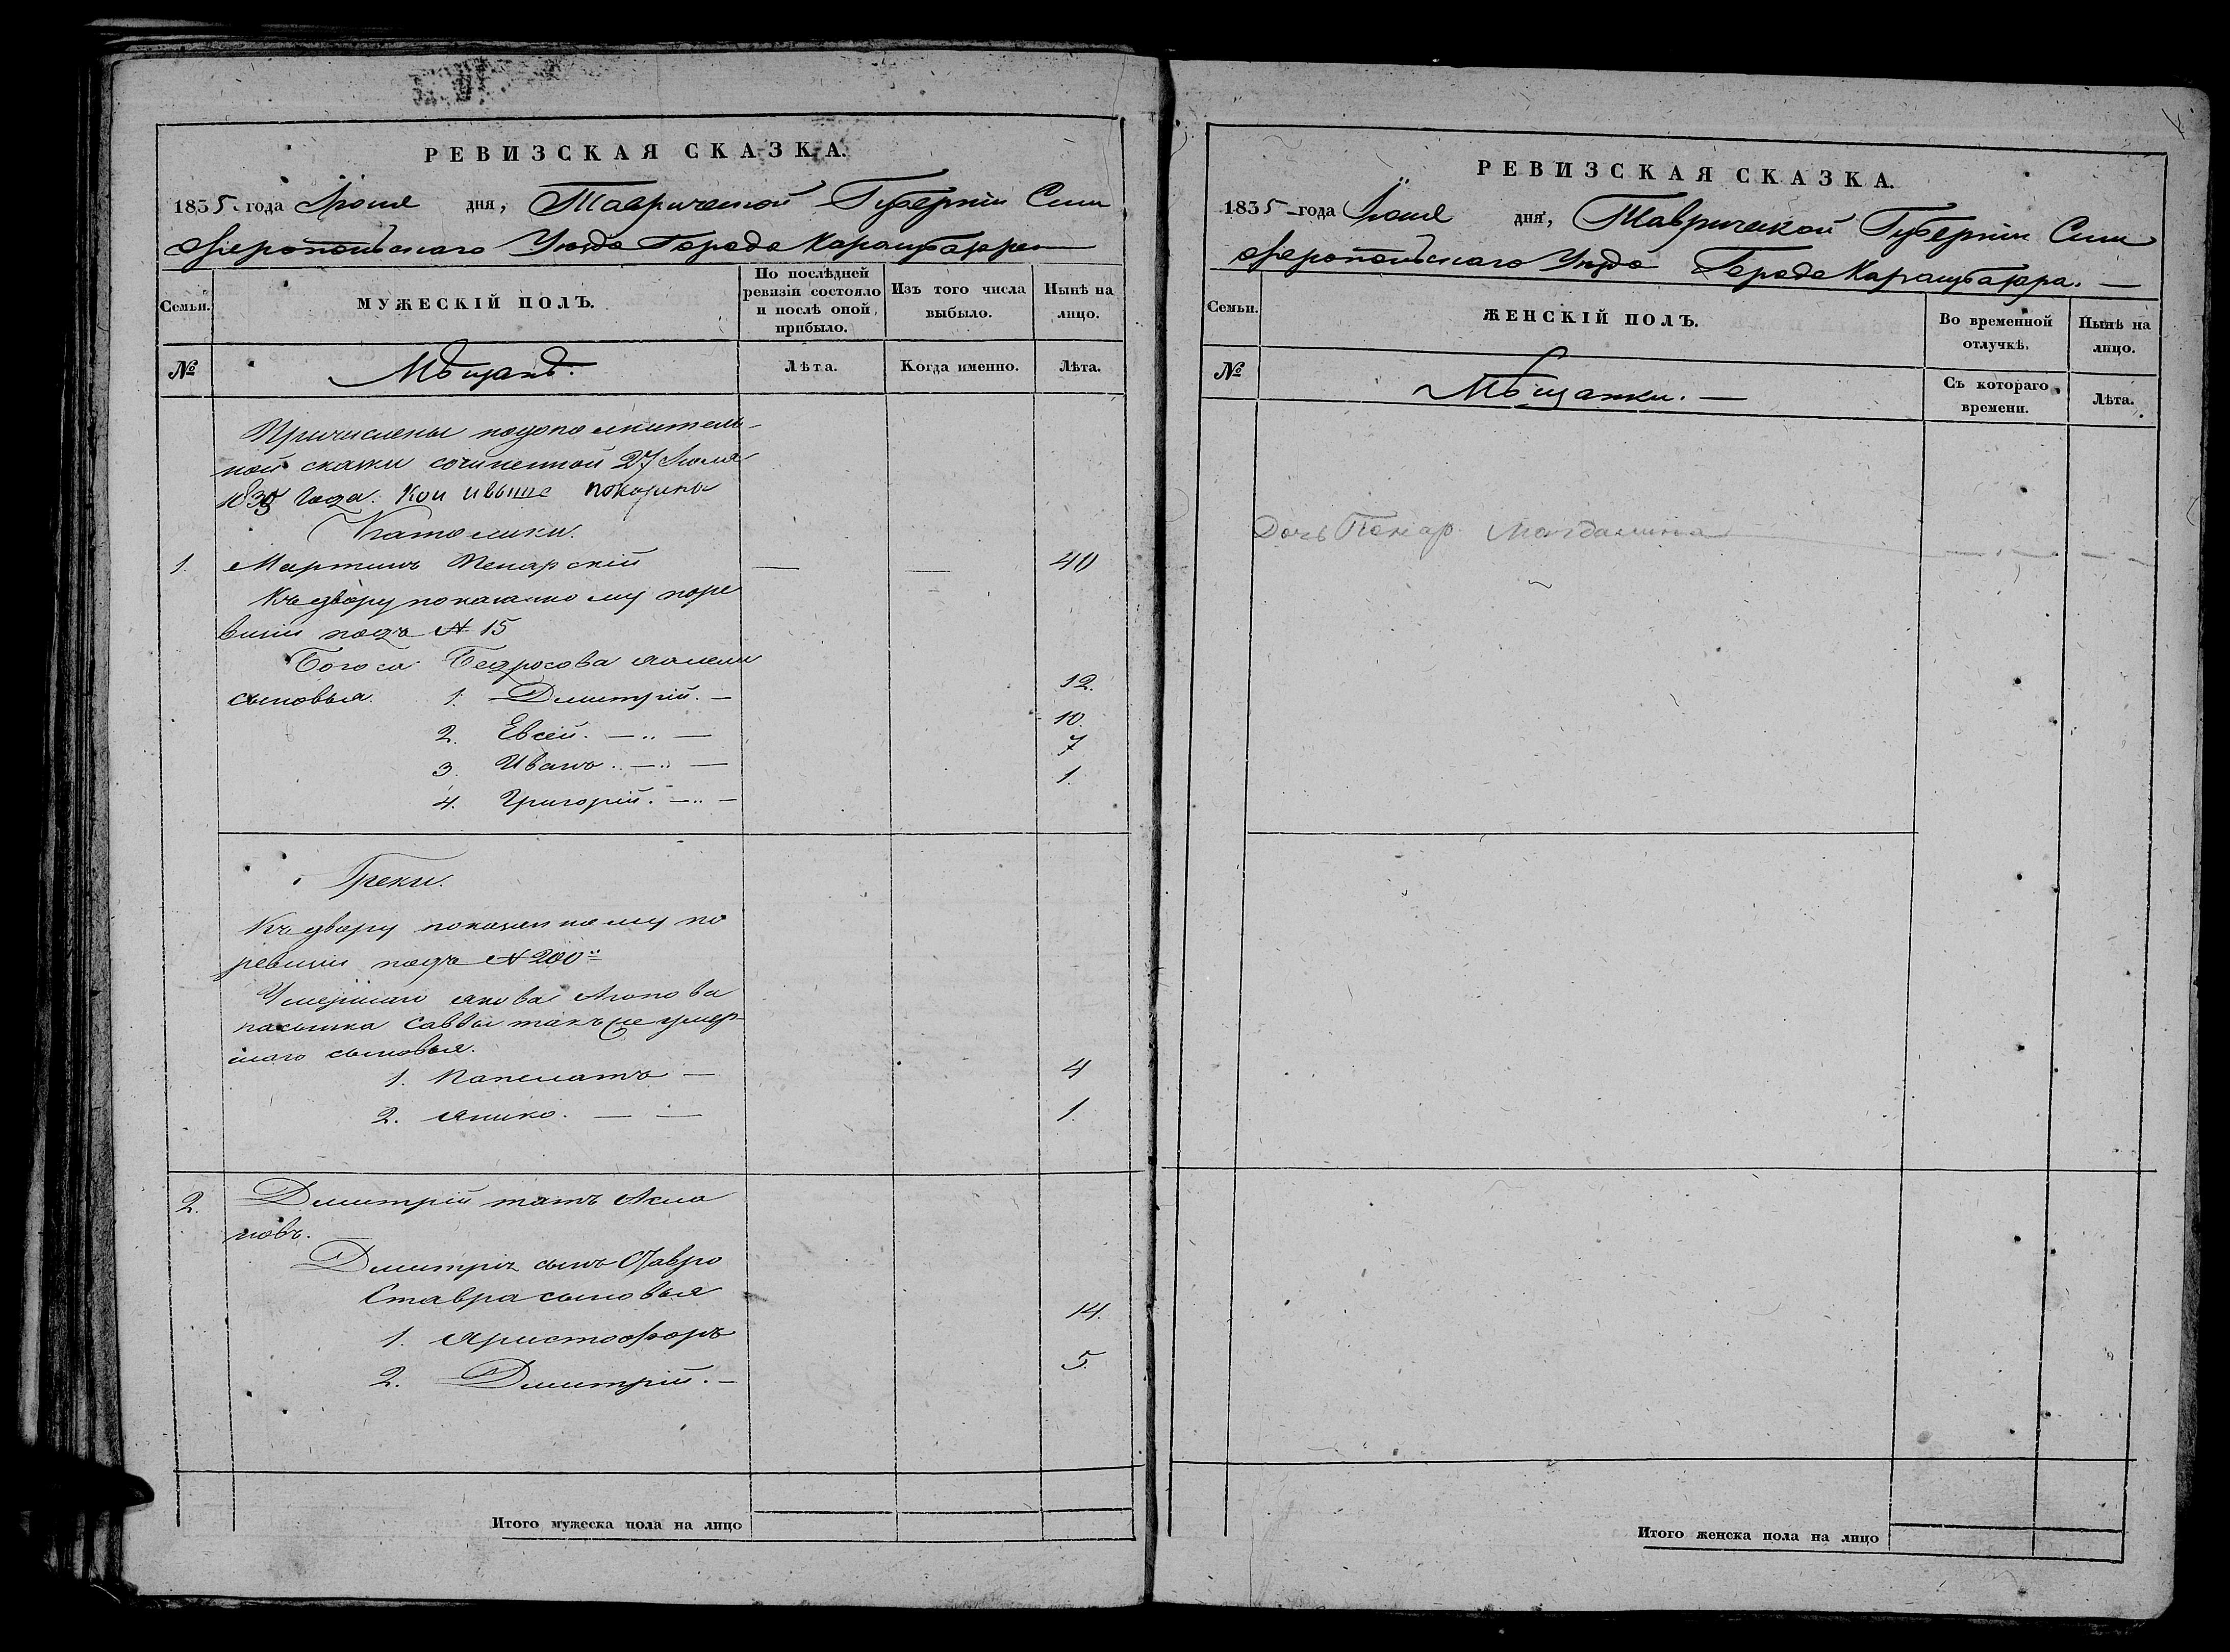 РЕВИЗСКАЯ СКАЗКА.
1835 года Июня дня, Таврической Губерніи Сим
феропольскаго Уѣзда Города Карасубазара
Семьи.
МУЖЕСКІЙ ПОЛЪ.
По послѣдней
ревизіи состояло
и послѣ оной
прибыло.
Изъ того числа
выбыло.
Нынѣ на
лицо.
№
Мѣщанѣ.
Лѣта.
Когда именно.
Лѣта.
Причислены подополнитель-
ной скаски сочиненной 27 Июля
1835 Года. Кои и выше показаны
Католики.
1. Мартинъ Пенарскій — — 40
Къ двору показанному поре
визіи подъ № 15
Богоса Бедросова
сыновья. 1. Дмитрій. — 12.
2. Евсей. — 〃 — 10.
3. Иванъ. — 〃 — 7
4. Григорій. — 〃 — 1.
Греки.
Къ двору показанному по
ревизіи подъ № 200
Умершаго Якова
пасынка Саввы такъ же умер-
шаго сыновья.
1. — 4
2. Янико. — — 1.
2. Дмитрій татъ Асла
новъ.
Дмитрія сынъ Ставро
Ставра сыновья
1. Христофоръ 14.
2. Дмитрій. — 5.
Итого мужеска пола на лицо
РЕВИЗСКАЯ СКАЗКА.
1835 года Июня дня, Таврической Губерніи Сим
феропольскаго Уѣзда Города Карасубазара. —
Семьи.
ЖЕНСКІЙ ПОЛЪ.
Во временной
отлучкѣ.
Нынѣ на
лицо.
№
Мѣщанки. —
Съ котораго
времени.
Лѣта.
Дочь Пенар. Магдалина
Итого женска пола на лицо